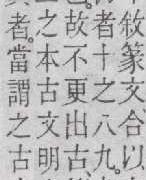 敘篆文合以
者十之八九。
故不更出古
之本古文明
者。當謂之古